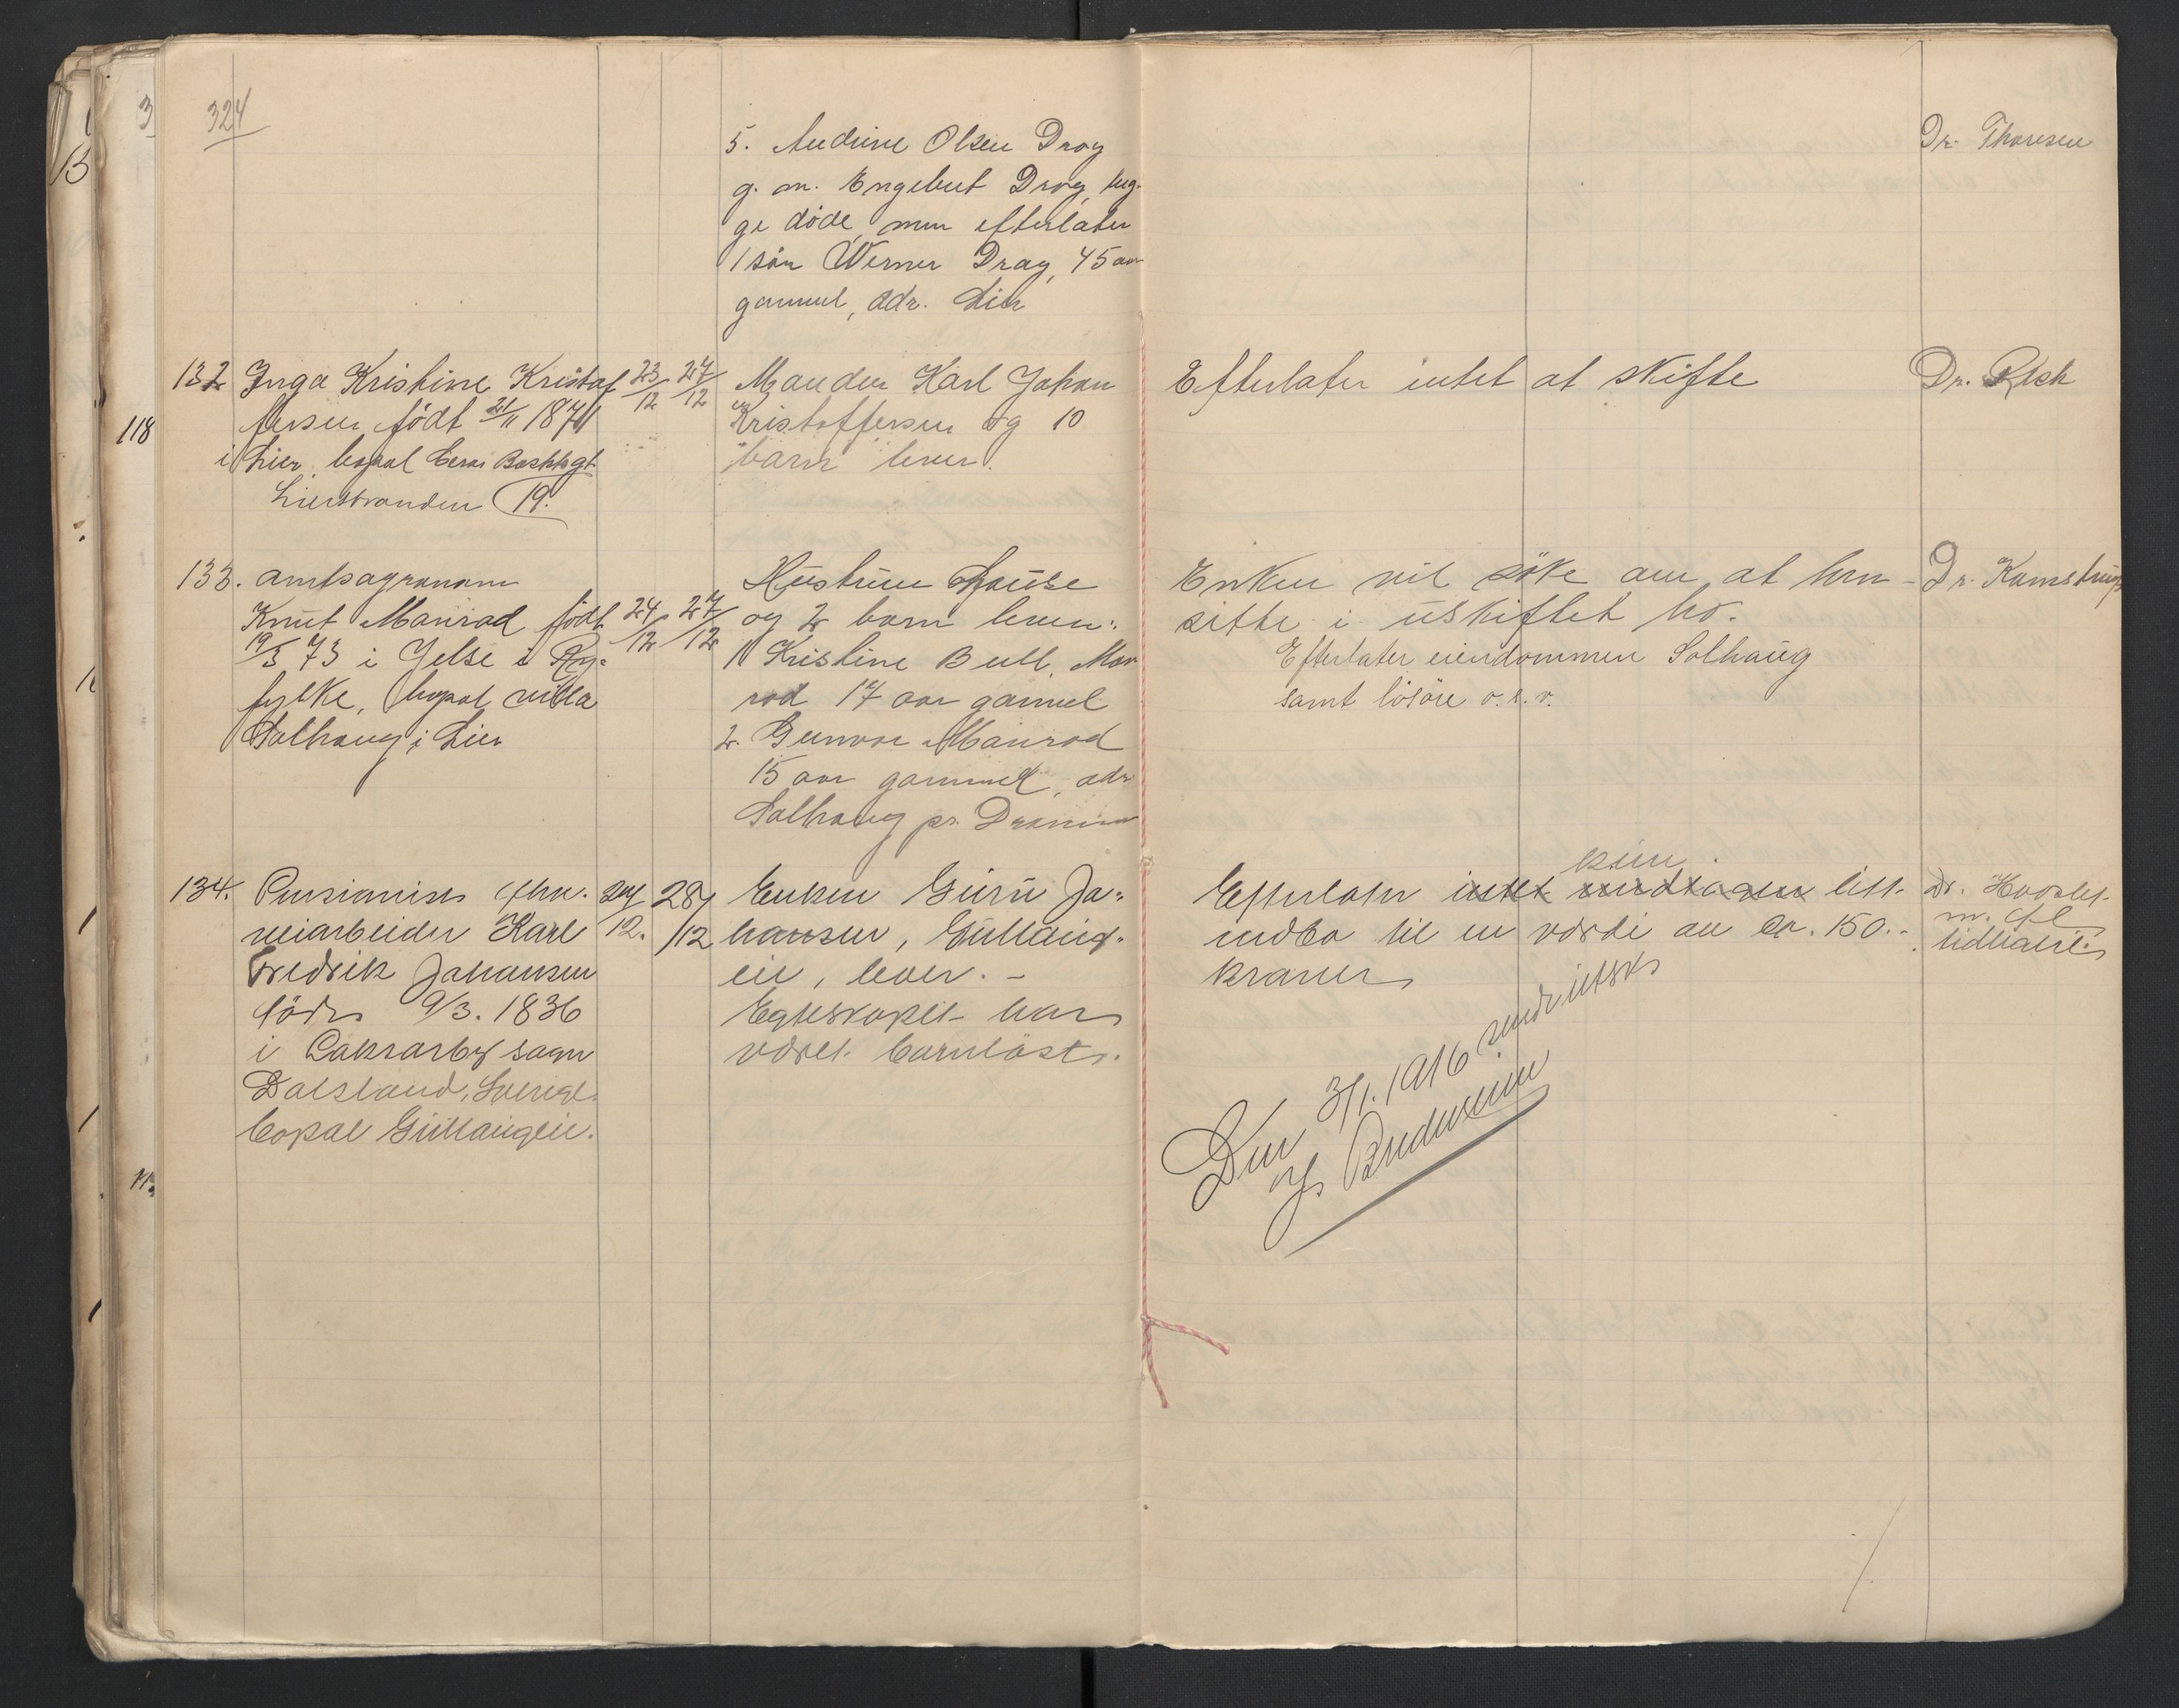 324
5. Audine Olsen Drog
g. m. Engebret Drog, beg-
ge döde, men efterlater
1 sön Werner Drag, 45 aar
gammel, adr. Lier
Dr. Thoresen
132 Inga Kristine Kristof
fersen, födt 21/11 1871
i Lier, bopæl
Lierstranden 19.
23/12 27/12
Manden Karl Johan
Kristoffersen og 10
barn lever.
Efterlater intet at skifte
Dr. Rsch
118
133. amtsagronom
Knut Maurad födt
19/5 73 i Jelse i Ry-
fylke, bopæl villa
Solhaug i Lier
24/12 27/12
Hustruen Louise
og 2 barn lever:
1 Kristine Bull Mau
rod 17 aar gammel
2. Gunvor Maurod
15 aar gammel, adr
Solhaug pr. Drammen
Enken vil söke om at hen-
sitte i uskiftet bo.
Efterlater eiendommen Solhaug
samt lösöre o. s. v.
Dr. Kamstrup
134. Pensionist fhv.
veiarbeider Karl
Fredrik Johansen
född 9/3. 1836
i sogn
Dalsland, Sverige.
bopæl Gullaugeie.
24/12. 28/12
Enken Guru Jo-
hansen, Gullaug-
eie, lever. -
Egteskapet har
været barnlöst.
kun
Efterlater intet undtagen litt
indbo til en værdi av ca. 150.-
kroner
Dr.
m. fl.
Den 3/1. 1916